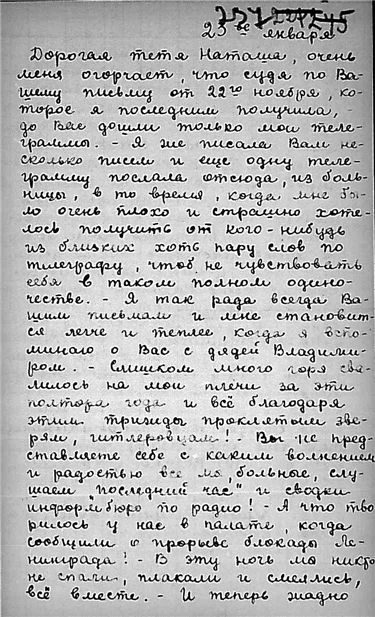 23ье января
Дорогая тетя Наташа, очень
меня огорчает, что судя по Ва-
шему письму от 22го ноября, ко-
торое я последним получила, -
до Вас дошли только мои теле-
граммы. - Я же писала Вам не-
сколько писем и еще одну теле-
грамму послала отсюда, из боль-
ницы, в то время, когда мне бы-
ло очень плохо и страшно хоте-
лось получить от кого-нибудь
из близких хоть пару слов по
телеграфу, чтоб не чувствовать
себя в таком полном одино-
честве. - Я так рада всегда Ва-
шим письмам и мне становит-
ся легче и теплее, когда я вспо-
минаю о Вас с дядей Владими-
ром. - Слишком много горя сва-
лилось на мои плечи за эти
полтора года и всё благодаря
этим трижды проклятым зве-
рям, гитлеровцам! - Вы не пред-
ставляете себе с каким волнением
и радостью все мы, больные, слу-
шаем "последний час" и сводки
информбюро по радио! - А что тво-
рилось у нас в палате, когда
сообщили о прорыве блокады Ле-
нинграда! - В эту ночь мы никто
не спали, плакали и смеялись,
всё вместе. - И теперь жадно